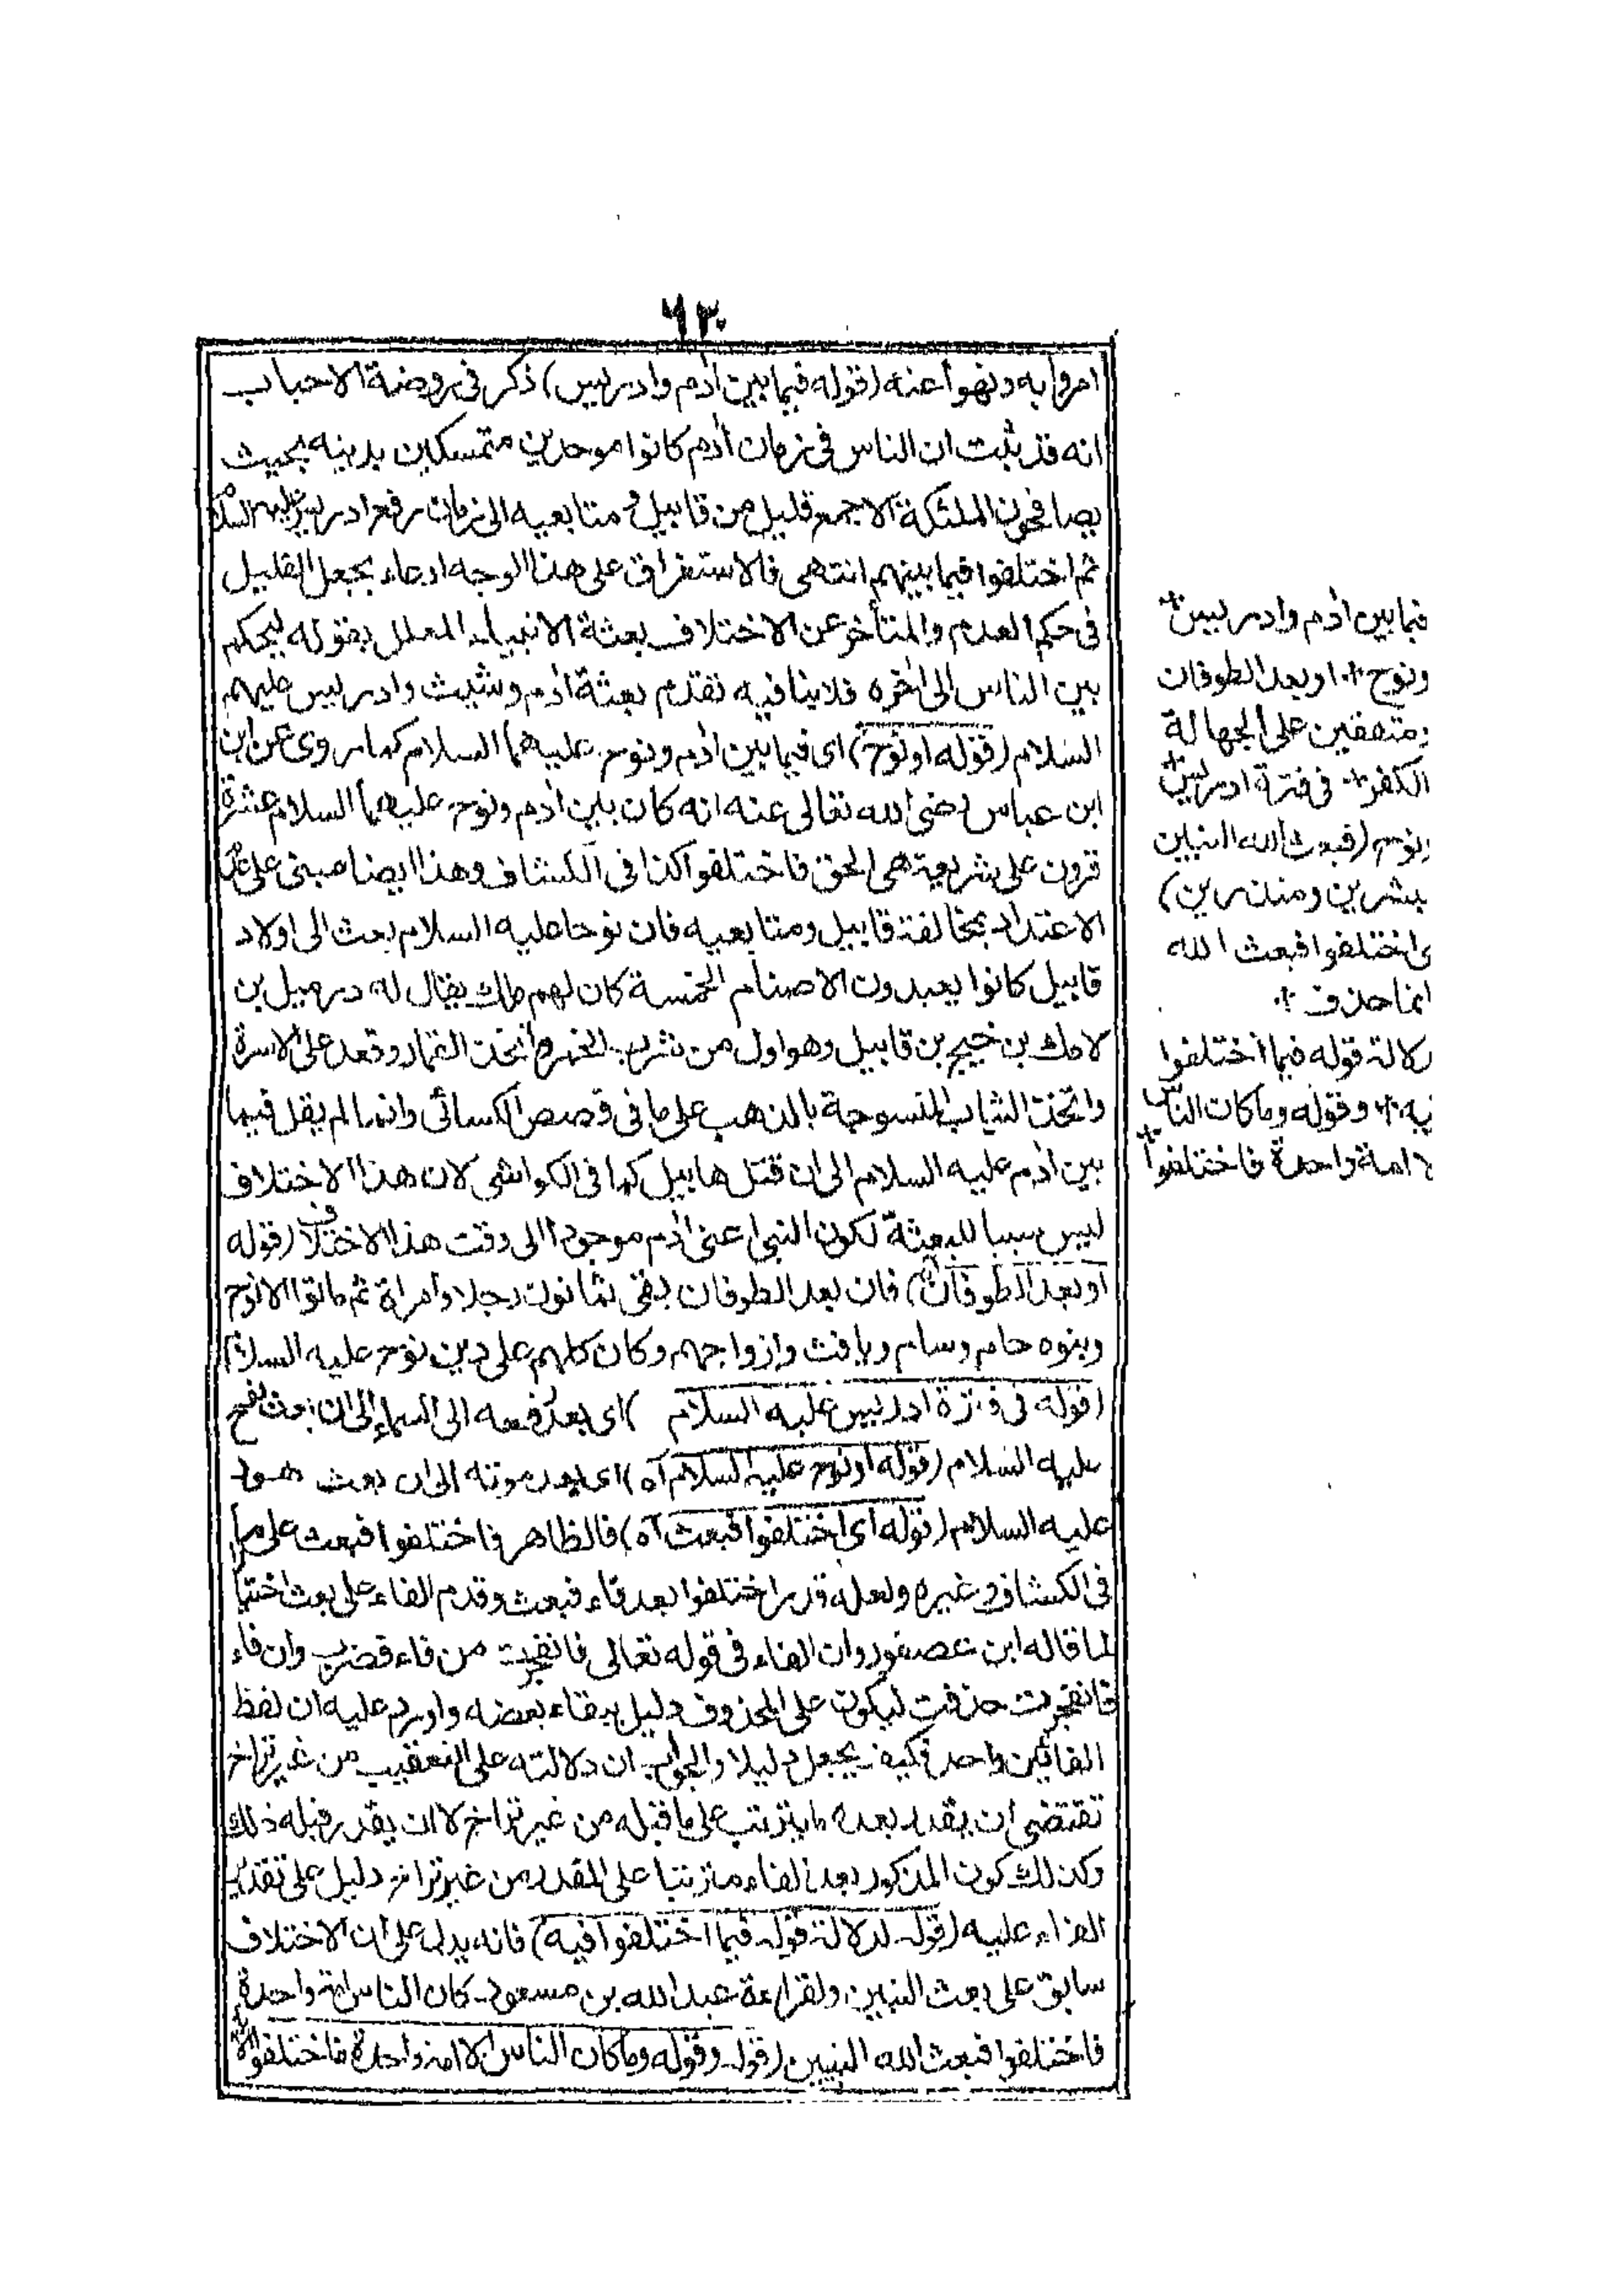 ٦٣٠
امروا به ونهوا عنه (قوله فيما بين اٰدم وادريس) ذكر فى روضة الاحباب
انه قد ثبت ان الناس فى زمان اٰدم كانوا موحدين متمسكين بدينه بحيث
يصافحون الملئكة الا جمع قليل من قابيل و متابعيه الى زمان رفع ادريس عليهم السلام
ثم اختلفوا فيما بينهم انتهى فالاستغراق على هذا الوجه ادعاء بجعل القليل
فى حكم العدم والمتأخر عن الاختلاف بعثة الانبياء المعلل بقوله ليحكم
بين الناس الى اٰخره فلا ينافيه تقدم بعثة اٰدم وشيث وادريس عليهم
السلام (قوله او نوح) اى فيما بين اٰدم ونوح عليهما السلام كما روى عن ابن
ابن عباس رضى الله تعالى عنه انه كان بين اٰدم ونوح عليهما السلام عشرة
قرون على شريعة هى الحق فاختلفوا كذا فى الكشاف وهذا ايضا مبنى على عدم
الاعتداد بمخالفة قابيل ومتابعيه فان نوحا عليه السلام بعث الى اولاد
قابيل كانوا يعبدون الاصنام الخمسة كان لهم ملك يقال له درميل بن
لامك بن خييج بن قابيل وهو اول من شرب الخمر واتخذ القمار وقعد على الاسرة
واتخذ الثياب المنسوجة بالذهب على ما فى قصص الكسائى وانما لم يقل فيما
بين اٰدم عليه السلام الى ان قتل هابيل كما فى الكواشى لان هذا الاختلاف
ليس سببا للبعثة لكون النبى اعنى اٰدم موجودا الى وقت هذا الاختلاف (قوله
او بعد الطوفان) فان بعد الطوفان بقى ثمانون رجلا وامراة ثم ماتوا الا نوح
وبنوه حام وسام ويافث وازواجهم وكان كلهم على دين نوح عليه السلام
(قوله فى فترة ادريس عليه السلام) اى بعد رفعه الى السماء الى ان بعث نوح
عليه السلام (قوله او نوح عليه السلام آه) اى بعد موته الى ان بعث هود
عليه السلام (قوله اى اختلفوا فبعث آه) فالظاهر فاختلفوا فبعث على ما
فى الكشاف و غيره ولعله قدر اختلفوا بعد فاء فبعث وقدم الفاء على بعث اختيا
لما قاله ابن عصفور وان الفاء فى قوله تعالى فانفجرت من فاء فضرب وان فاء
فانفجرت حذفت ليكون على المحذوف دليل ببقاء بعضه واورد عليه ان لفظ
الفائين واحد فكيف يجعل دليلا والجواب ان دلالته على التعقيب من غير تراخ
تقتضى ان يقدر بعده ما يترتب على ما قبله من غير تراخ لا ان يقدر قبله ذلك
وكذلك كون المذكور بعد الفاء مترتبا على المقدر من غير تراخ دليل على تقدير
الفاء عليه (قوله لدلالة قوله فيما اختلفوا فيه) فانه يدل على ان الاختلاف
سابق على بعث النبيين ولقراءة عبد الله بن مسعود كان الناس امة واحدة
فاختلفوا فبعث الله النبيين (قوله وقوله وما كان الناس الا امة واحدة فاختلفوا
فيما بين اٰدم وادريس
ونوح او بعد الطوفان
متفقين على الجهالة
الكفر فى فترة ادريس
ونوح (فبعث الله النبيين
مبشرين ومنذرين)
اى اختلفوا فبعث الله
انما حذف
لدلالة قوله فيما اختلفوا
فيه وقوله وما كان الناس
الا امة واحدة فاختلفوا